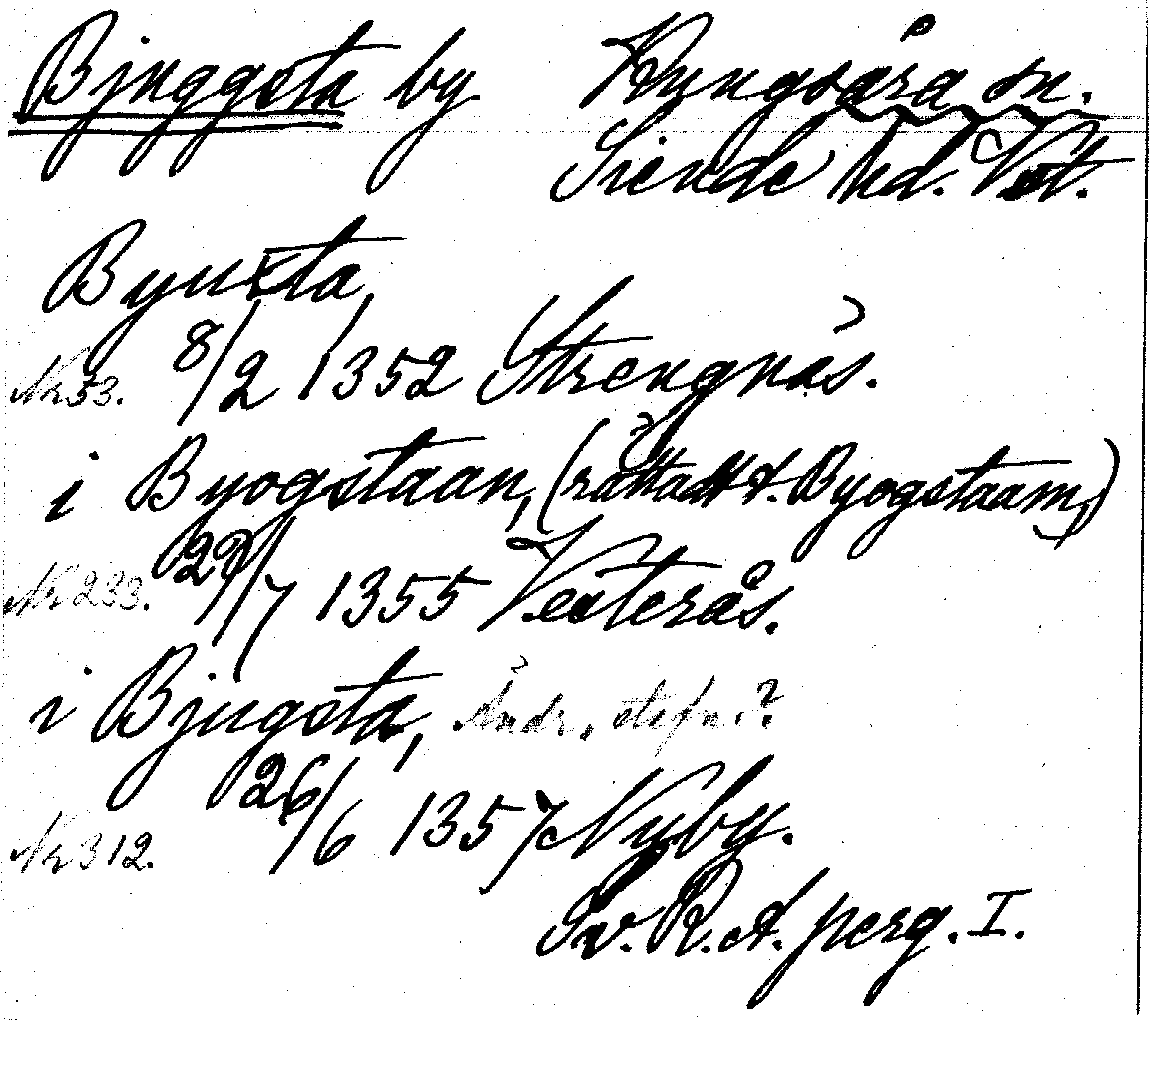 Bjuggsta by Kungsåra sn.
Siende hd. Vst.
Byuxta
Nr 53. 8/2 1352 Strengnäs.
i Byogstaan, (rättadt f. Byogstaam,)
Nr 233. 22/7 1355 Vesterås.
i Bjugsta, Ändr.
Nr 312. 26/6 1357 Nyby.
Sv. R. A. perg. I.